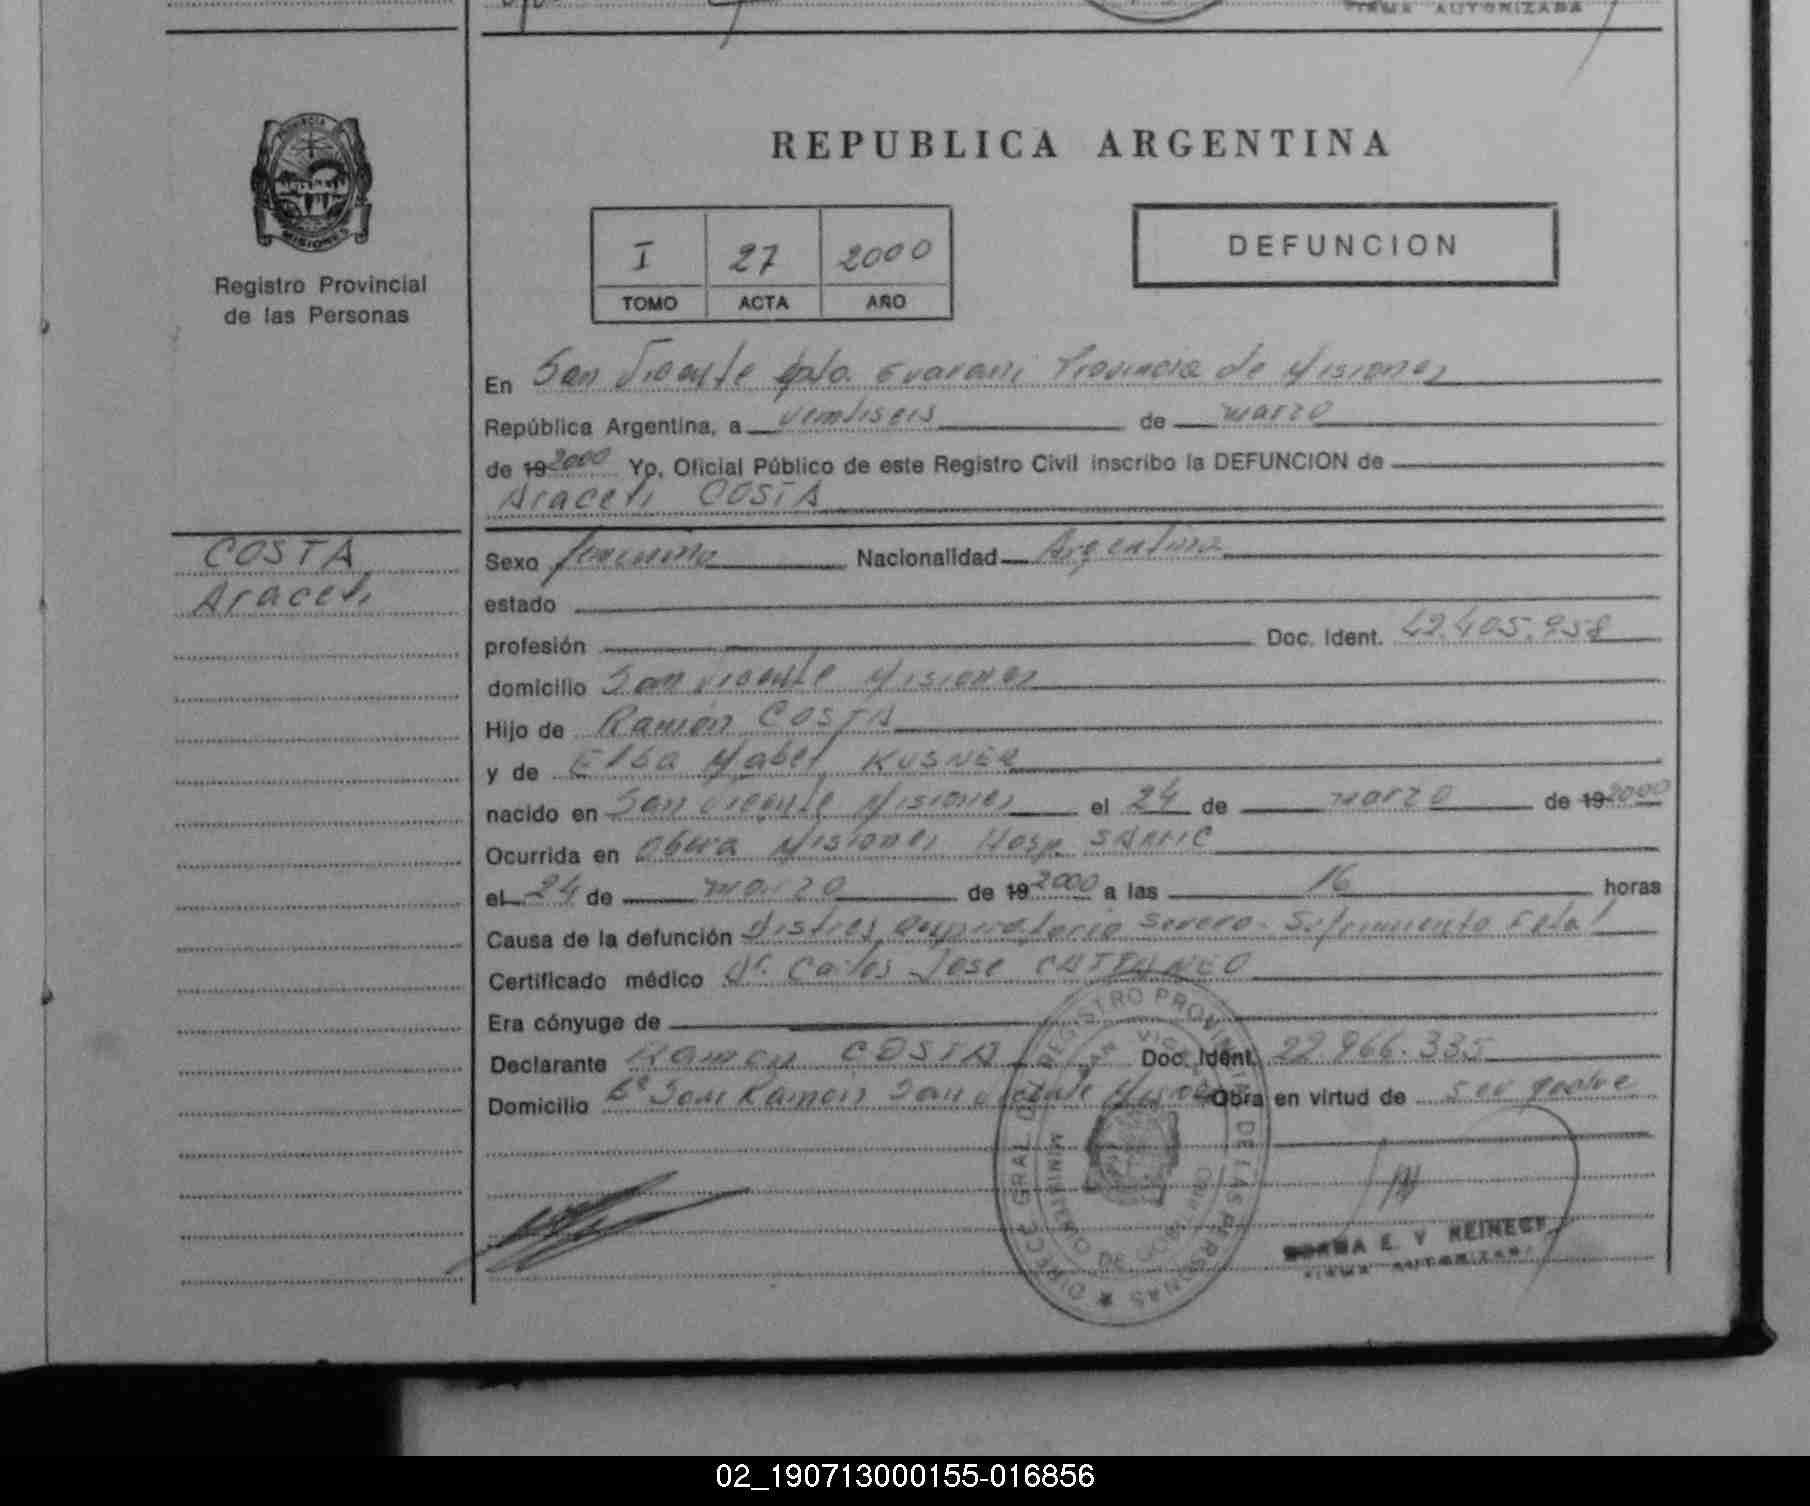 FIRMA AUTORIZADA
PROVINCIA
MISIONES
Registro Provincial
de las Personas
REPUBLICA ARGENTINA
I 27 2000
TOMO ACTA AÑO
DEFUNCION
En San Vicente Dpto. Guarani Provincia de Misiones
República Argentina, a veintiseis de marzo
de 19 2000 Yo, Oficial Público de este Registro Civil inscribo la DEFUNCION de
Araceli COSTA
COSTA
Araceli
Sexo femenino Nacionalidad Argentina
estado
profesión Doc. Ident. 42.405.958
domicilio San Vicente Misiones
Hijo de Ramón COSTA
y de Elba Mabel KUSNER
nacido en San Vicente Misiones el 24 de marzo de 19 2000
Ocurrida en Obera Misiones Hosp. SAMIC
el 24 de marzo de 19 2000 a las 16 horas
Causa de la defunción Distres Respiratorio Severo - Sufrimiento Fetal
Certificado médico Dr. Carlos Jose CATTANEO
Era cónyuge de
Declarante Ramon COSTA Doc. Ident. 22.966.335
Domicilio Bº San Ramon San Vicente Misiones Obra en virtud de ser padre
DIRECC. GRAL. DEL REGISTRO PROVINCIAL DE LAS PERSONAS
E. V REINECK
FIRMA AUTORIZADA
02_190713000155-016856